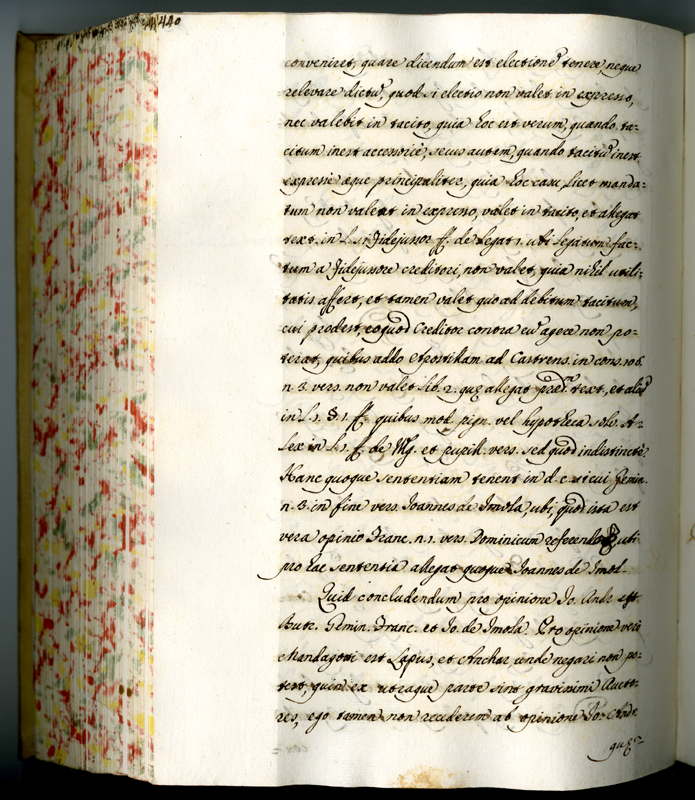 440
conveniret, quare dicendum est electione tenere, neque
relevare dictu, quod si electio non valet in expresso,
nec valebit in tacito, quia hoc est verum, quando ta-
citum inest accessorie, secus autem, quando tacitu inest
expresse æque principaliter, quia hoc casu licet manda-
tum non valeat in expresso, valet in tacito, et allegat
text. in L. si fidejussor ff. de legat. 1. ubi legatum fac-
tum a fidejussore creditori, non valet, quia nihil utili-
tatis affert, et tamen valet quo ad debitum tacitum,
cui prodest, eo quod Creditor contra eu agere non po-
terat, quibus addo Apostillam ad Castrens. in cons. 106.
n. 3. vers. non valet lib. 2. quæ allegat præd. text., et aliu
in L. 1. §. 1. ff. quibus mod. pign. vel hypotheca solv. A-
lex in L. 1. ff. de Vulg. et pupill. vers. sed quod indistincte.
Hanc quoque sententiam tenent in d. c. si cui Gemin.
n. 3. in fine vers. Joannes de Imola, ubi, quod ista est
vera opinio Franc. n. 1. vers. Dominicum referendo ubi
pro hac sententia allegat quoque Joannes de Imol.
Quid concludendum pro opinione Jo. Andr. est
Butr. Gemin. Franc. et Jo. de Imola. Pro opinione vero
Mandagotti est Lapus, et Anchar. unde negari non po-
test, quin ex utraque parte sint gravissimi Aucto-
res, ego tamen non recederem ab opinione Jo: Andr.
quæ